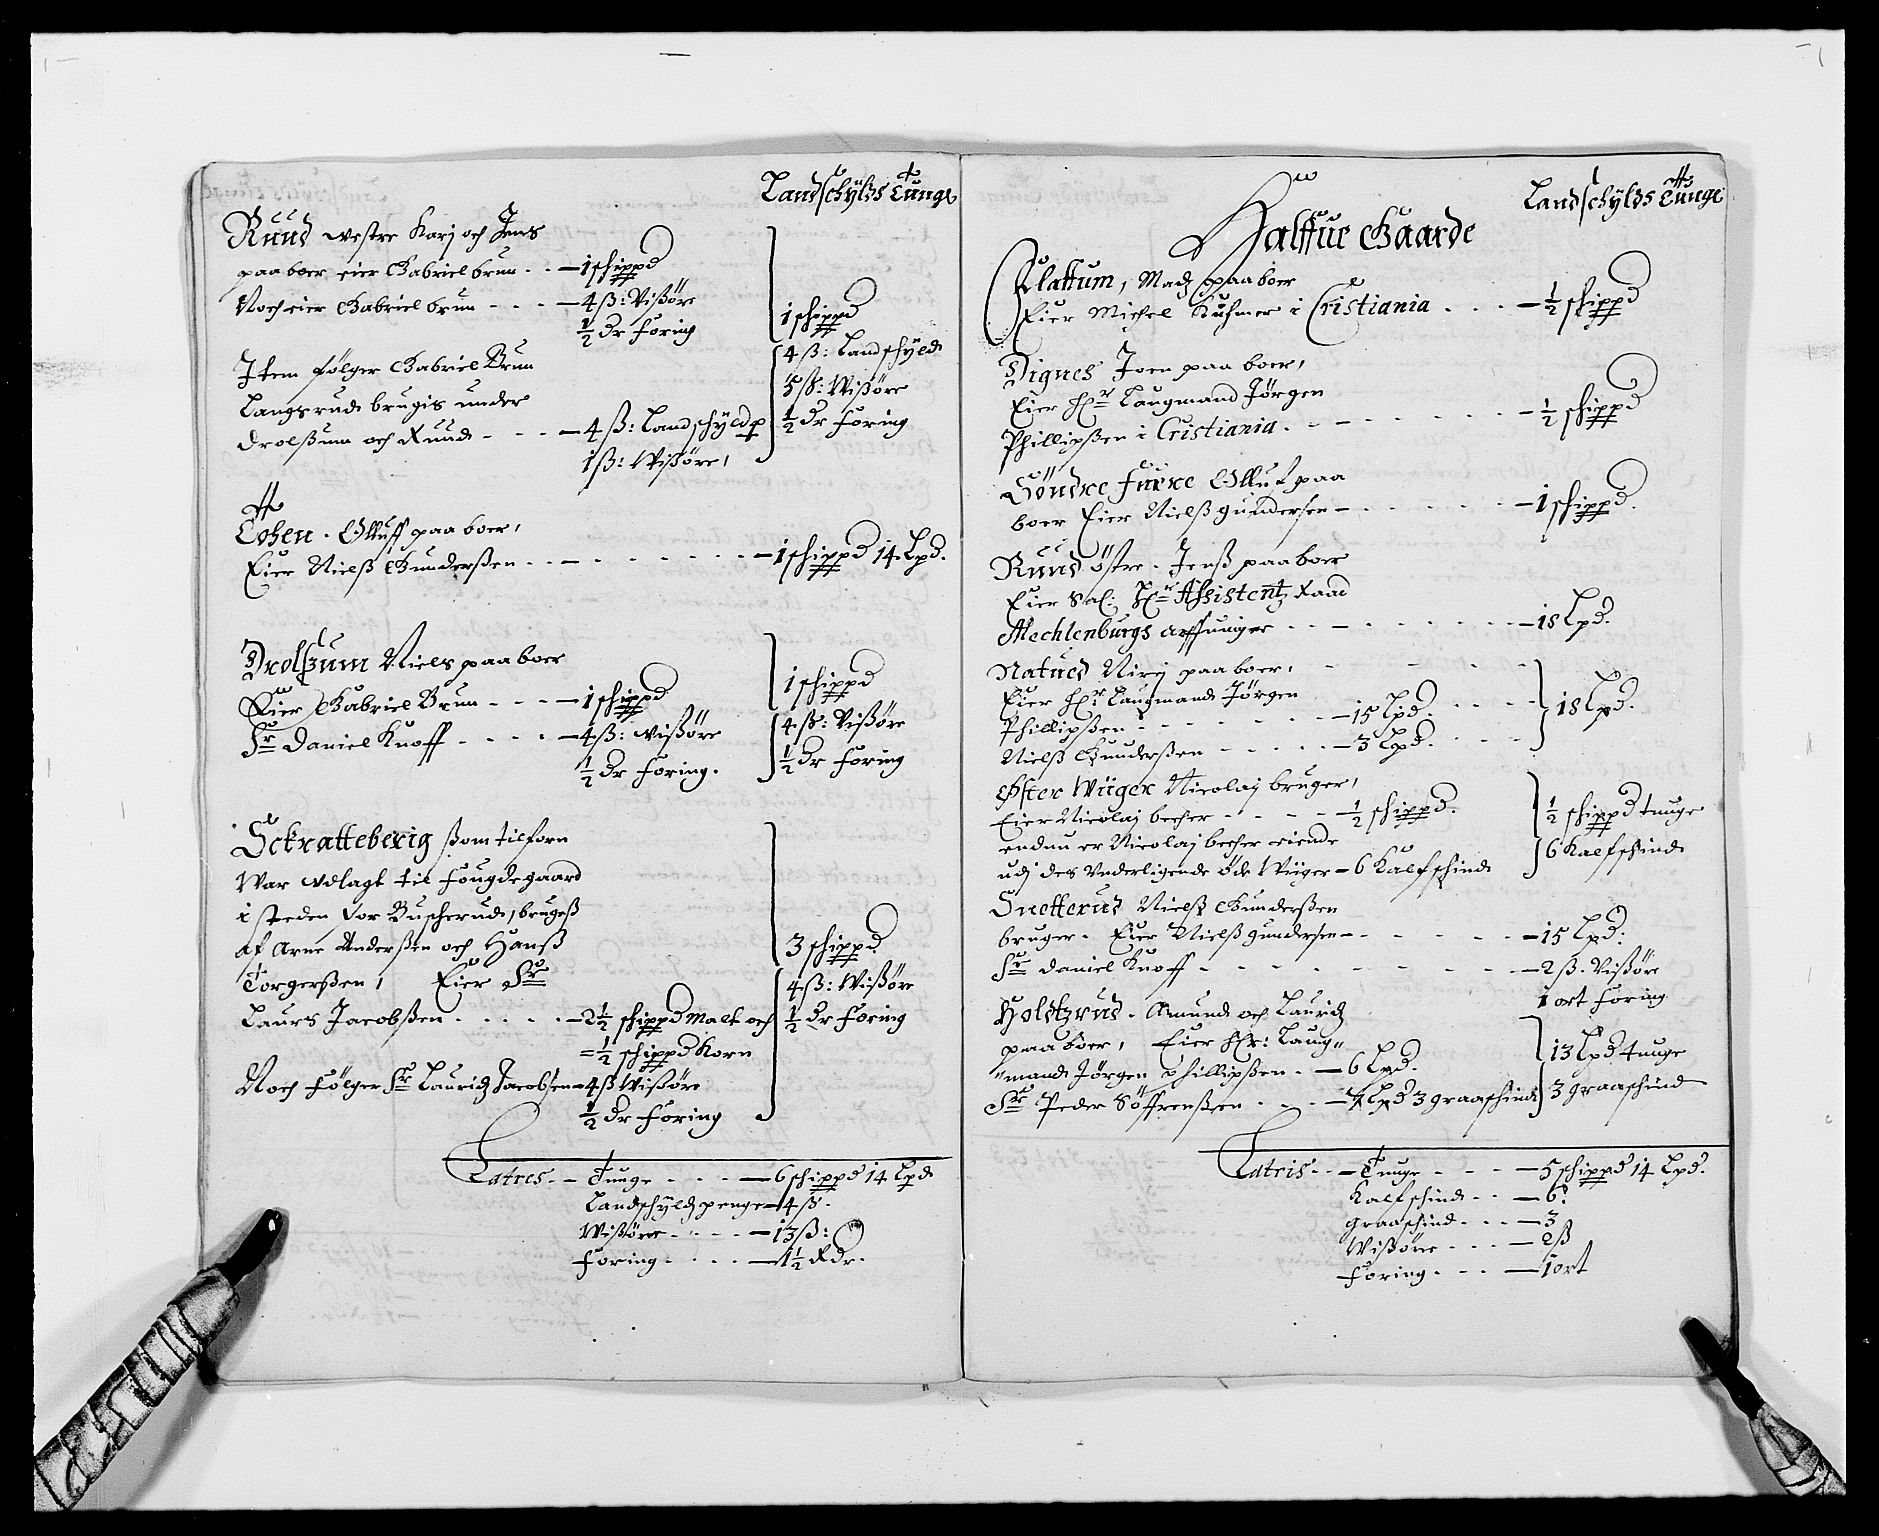 Landschÿlds Tunge
Ruud westre Karj och Jens
paaboer eier Gabriel brun - - 1 schippd
Noch eier Gabriel brun - - - 4 ß: Vißöre
½ dr foring
1 schippd
4 ß: Landschÿld
5 ß: Wißöre
½ dr foring
Item følger Gabriel Brun
Langsrud brugis under
Drolßum och Ruud - - - 4 ß: Landschÿld
1 ß: Wißöre,
Tosen. Olluff paaboer,
Eier Nielß Gunderßen - - - - 1 schippd 14 Lpd.
Drolßum Niels paaboer
Eier Gabriel Brun - - - 1 schippd
Sr Daniel Knoff - - - - 4 ß: wißöre
½ dr foring.
1 schippd
4 ß: Vißöre
½ dr foring
Sckratteberig ßom tilforn
War udlagt til fougdegaard
i steden for Buscherud, brugeß
af Arne Anderßen och Hanß
Torgerßen, Eier Sr
Laurs Jacobßen - - - - 2½ schippd Malt och
½ schippd Korn
Noch følger Sr Lauridz Jacobsen - 4 ß Wißöre
½ dr foring
3 schippd
4 ß: Wißöre
½ dr foring
Latres - - Tunge - - - 6 schippd 14 Lpd
Landschÿldz penge - 4 ß.
Wißöre - - - - 13 ß:
foring - - - - 1½ Rdr.
Landschÿlds Tunge
Halffue Gaarde
Plattum, Madz paaboer
Eier Michel Kuhmer i Cristiania - - - ½ schippd
Dignes Joen paa boer,
Eier Hr Laugmand Jörgen
Phillipßen i Cristiania - - - ½ schippd
Söndre furre Olluf paa
boer Eier Nielß gundersen - - - - 1 schippd.
Ruud östre. Jenß paaboer
Eier Sal: Hr Assistentz Raad
Mechlenburgs arffuinger - - - - 18 Lpd.
Natued Niri paaboer,
Eier Hr Laugmand Jörgen
Phillipßen - - - - 15 Lpd.
Nielß Gunderßen - - - - 3 Lpd.
18 Lpd.
Öster Wüger Nicolaj bruger,
Eier Nicolaj becher - - - - ½ schippd.
endnu er Nicolaj becher eiende
udj des Underligende öde Wiiger - 6 Kalfschind
½ schippd tunge
6 Kalfschind
Snetterud Nielß Gunderßen
bruger. Eier Nielß gundersen - - - - 15 Lpd:
Sr Daniel Knoff - - - - - 2 ß. Vißöre
1 ort foring
Holdtzrud. Amund och Lauridz
paaboer, Eier Hr: Laug„
„mand Jörgen Phillipßen - - 6 Lpd.
Sr Peder Söffrenßen - - - 7 Lpd 3 graaschind
13 Lpd tunge
3 graaschind
Latris - - Tunge - - - 5 schippd 14 Lpd.
Kalfschind - - 6.
graaschind - - - 3
Wißöre - - - 2 ß
foring - - - 1 ort